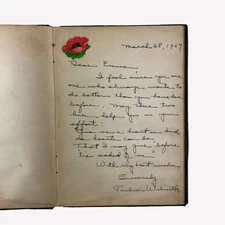 March 28, 1957
Dear Emma
I feel sure you are
one who always wants to
do better than you have done
before. May these two
help you in your
effort:
Give me a heart as kind
as hearts can be
That I may give before
'tis asked of me
With my best wishes
Sincerely